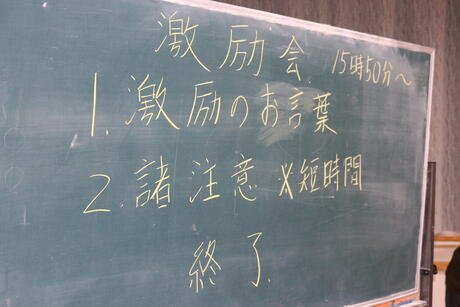 激励会 15時50分〜
1. 激励のお言葉
2. 諸注意 ※短時間
終了